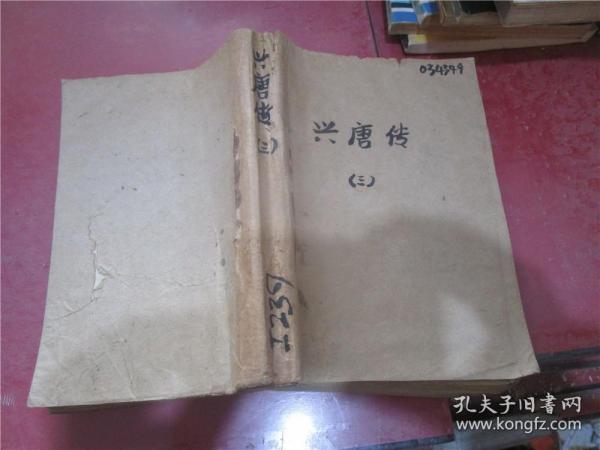 兴唐传
(三)
I239
034349
兴唐传
(三)
孔夫子旧书网
www.kongfz.com